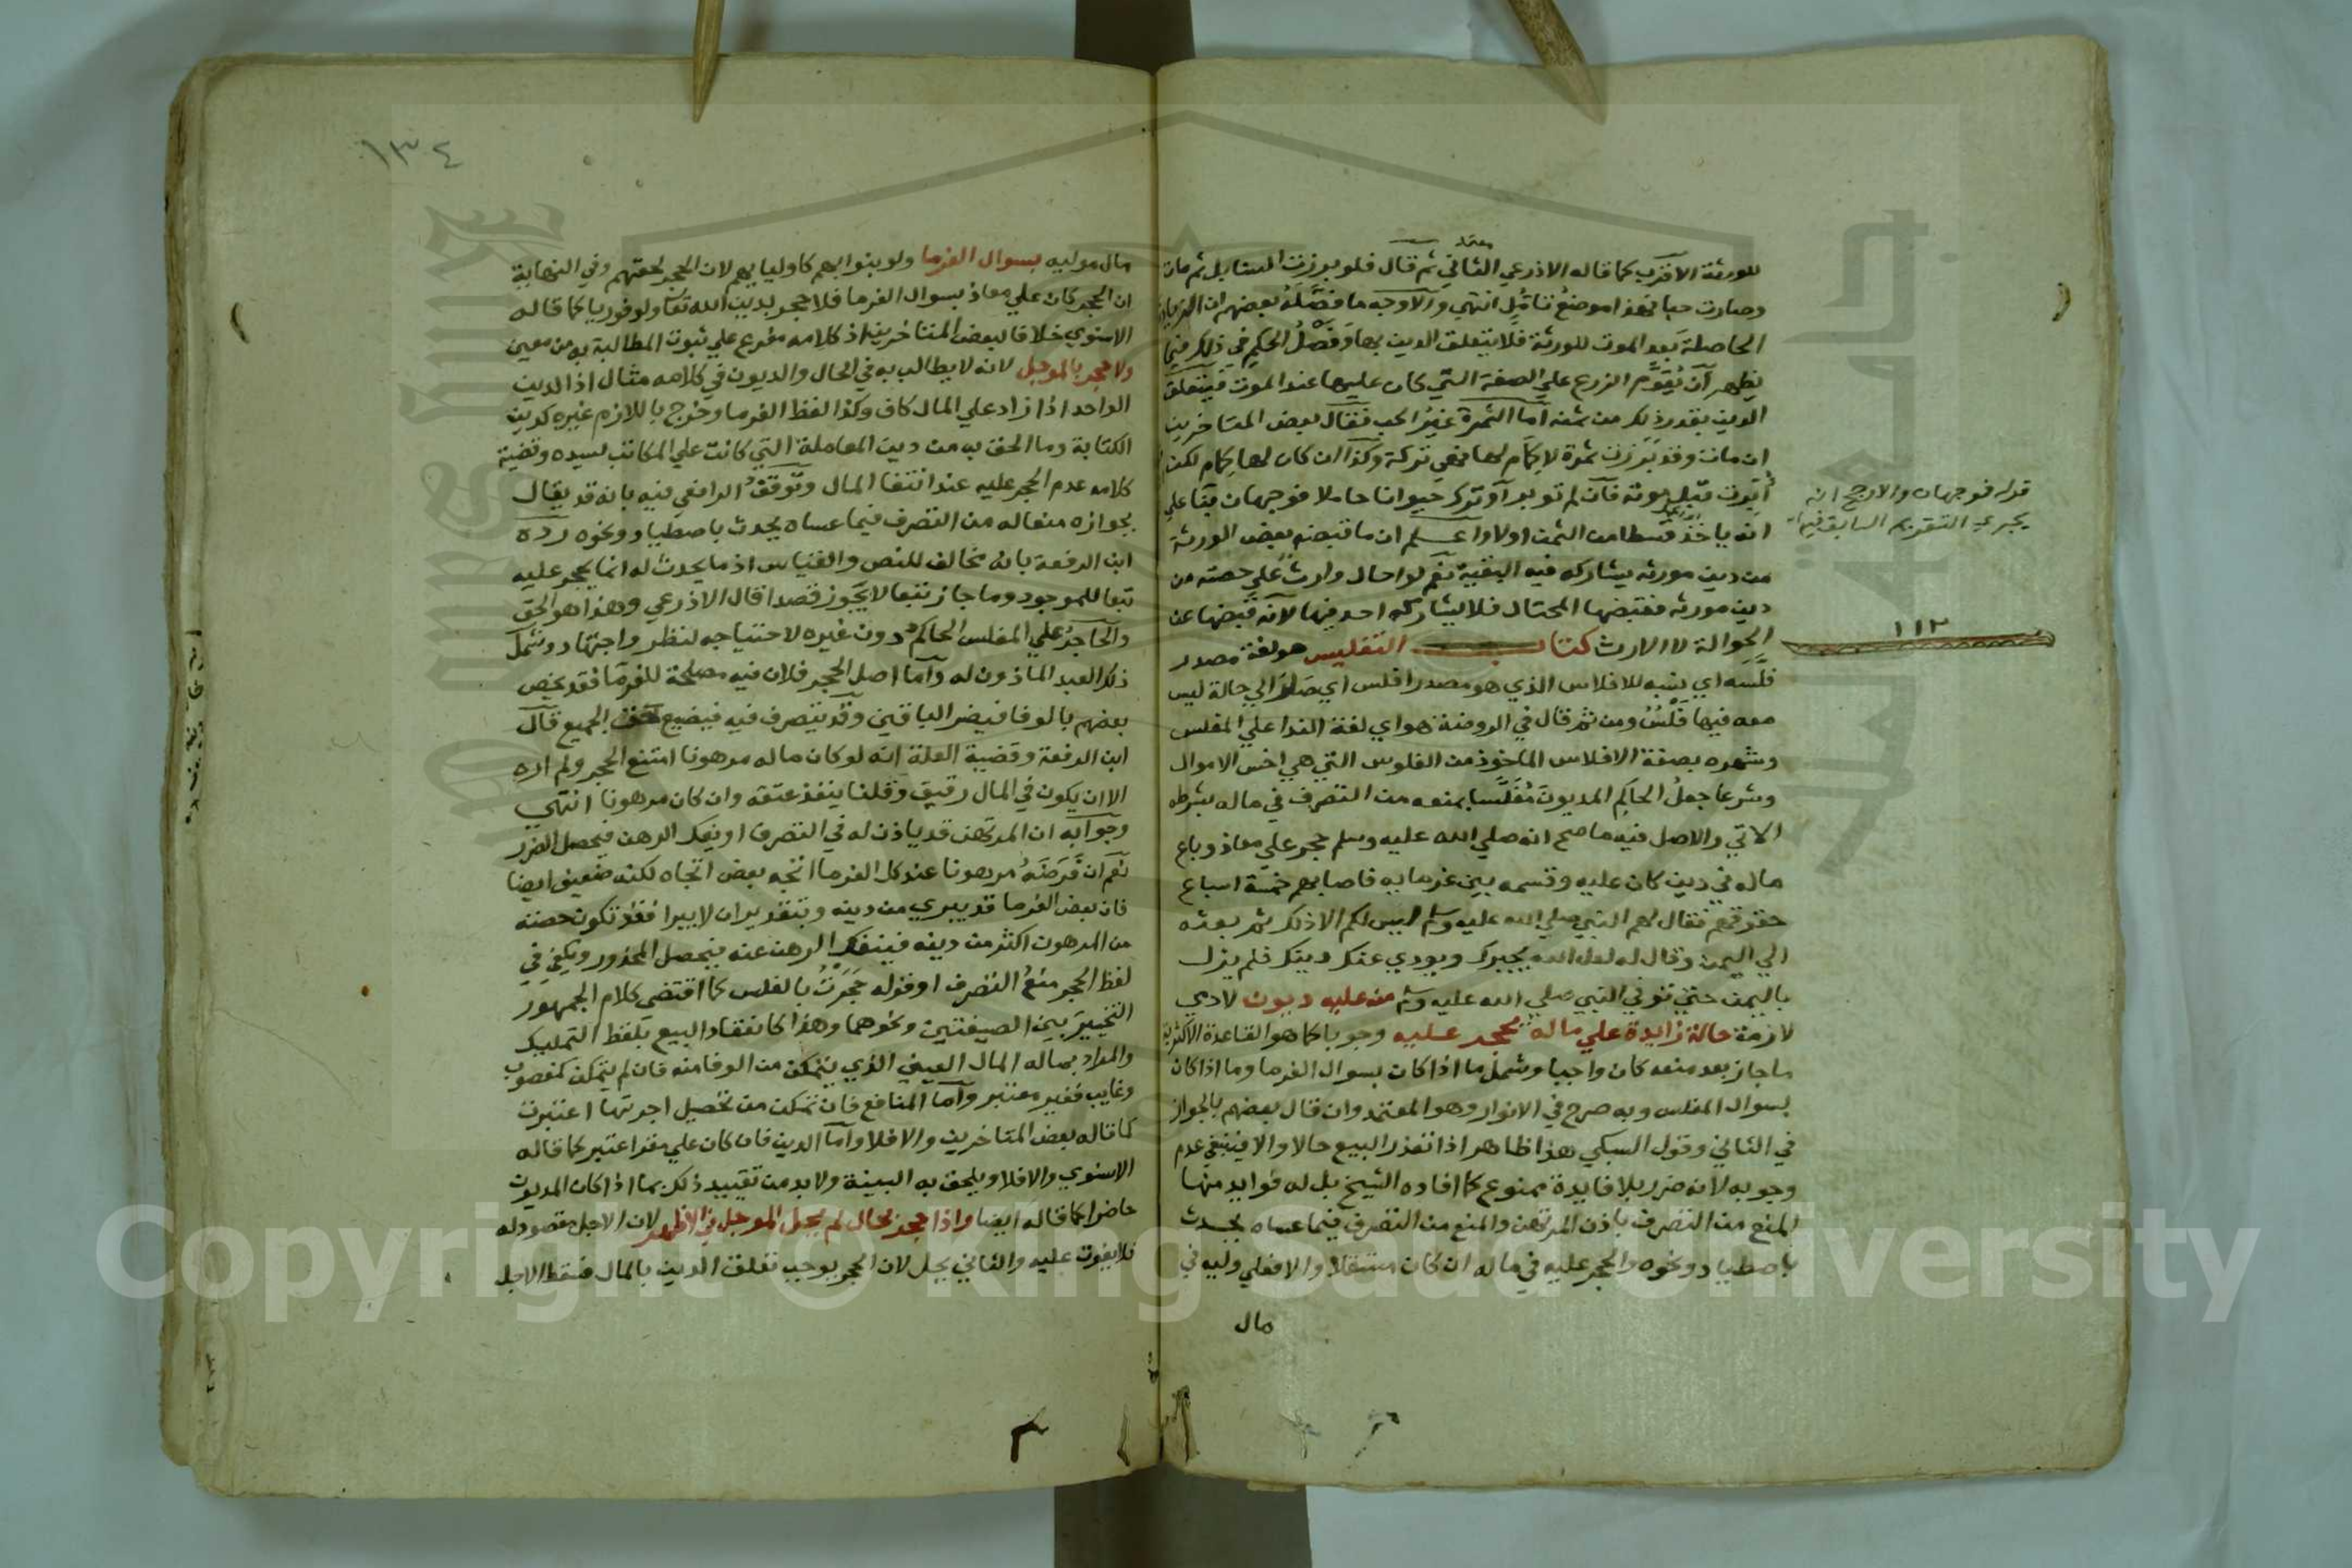 للورثة الاقرب كما قاله الاذرعي الثاني ثم قال فلو برزت السنابل ثم مات
معتمد
وصارت حبا فهذا موضع تامل انتهي والاوجه ما فصله بعضهم ان الزيادة
الحاصلة بعد الموت للورثة فلا يتعلق الدين بها وفصل الحكم في ذلك فيما
يظهر ان يقوم الزرع علي الصفة التي كان عليها عند الموت فيتعلق
الدين بقدر ذلك من ثمنه اما الثمرة غير الحب فقال بعض المتاخرين
ان مات وقد برزت ثمرة لا كمام لها فهي تركة وكذا ان كان لها كمام لكن
ابرت قبل موته فان لم توبر او ترك حيوانا حاملا فوجهان بنا علي
انه ياخذ قسطا من الثمن او لا واعلم ان ما قبضه بعض الورثة
من دين مورثه يشاركه فيه البقية نعم لو احال وارث علي حصته من
دين مورثه فقبضها المحتال فلا يشاركه احد فيها لانه قبضها عن
الحوالة لا الارث كتاب التفليس هو لغة مصدر
فلسه اي نسبه للافلاس الذي هو مصدر افلس اي صار الي حالة ليس
معه فيها فلس ومن ثم قال في الروضة هو اي لغة الندا علي المفلس
وشهره بصفة الافلاس الماخوذ من الفلوس التي هي اخس الاموال
وشرعا جعل الحاكم المديون مفلسا بمنعه من التصرف في ماله بشرطه
الاتي والاصل فيه ما صح انه صلي الله عليه وسلم حجر علي معاذ وباع
ماله في دين كان عليه وقسمه بين غرمايه فاصابهم خمسة اسباع
حقوقهم فقال لهم النبي صلي الله عليه وسلم ليس لكم الا ذلك ثم بعثه
الي اليمن وقال له لعل الله يجبرك ويودي عنك دينك فلم يزل
باليمن حتي توفي النبي صلي الله عليه وسلم من عليه ديون لادمي
لازمة حالة زايدة علي ماله يحجر عليه وجوبا كما هو القاعدة الاكثرية
ما جاز بعد منعه كان واجبا وشمل ما اذا كان بسوال الغرما وما اذا كان
بسوال المفلس وبه صرح في الانوار وهو المعتمد وان قال بعضهم بالجواز
في الثاني وقول السبكي هذا ظاهر اذا تعذر البيع حالا والا فينبغي عدم
وجوبه لانه ضرر بلا فايدة ممنوع كما افاده الشيخ بل له فوايد منها
المنع من التصرف باذن المرتهن والمنع من التصرف فيما عساه يحدث
باصطياد ونحوه والحجر عليه في ماله ان كان مستقلا والا فعلي وليه في
مال
قوله فوجهان والارجح انه
يجري التقويم السابق فيها
١١٣
١٣٤
مال موليه بسوال الغرما ولو بنوابهم كاوليايهم لان الحجر لحقهم وفي النهاية
ان الحجر كان علي معاذ بسوال الغرما فلا حجر بدين الله تعا ولو فوريا كما قاله
الاسنوي خلافا لبعض المتاخرين اذ كلامه مفرع علي ثبوت المطالبة به من معين
ولا حجر بالموجل لانه لا يطالب به في الحال والديون في كلامه مثال اذ الدين
الواحد اذا زاد علي المال كاف وكذا لفظ الغرما وخرج باللازم غيره كدين
الكتابة وما الحق به من دين المعاملة التي كانت علي المكاتب لسيده وقضية
كلامه عدم الحجر عليه عند انتفا المال وتوقف الرافعي فيه بانه قد يقال
بجوازه منعا له من التصرف فيما عساه يحدث باصطياد ونحوه رده
ابن الرفعة بانه مخالف للنص والقياس اذ ما يحدث له انما يحجر عليه
تبعا للموجود وما جاز تبعا لا يجوز قصدا قال الاذرعي وهذا هو الحق
والحاجر علي المفلس الحاكم دون غيره لاحتياجه لنظر واجتهاد وشمل
ذلك العبد الماذون له واما اصل الحجر فلان فيه مصلحة للغرما فقد يخص
بعضهم بالوفا فيضر الباقين وقد يتصرف فيه فيضيع حق الجميع قال
ابن الرفعة وقضية العلة انه لو كان ماله مرهونا امتنع الحجر ولم اره
الا ان يكون في المال رقيق وقلنا ينفذ عتقه وان كان مرهونا انتهي
وجوابه ان المرتهن قد ياذن له في التصرف او يفك الرهن فيحصل الضرر
نعم ان فرضه مرهونا عند كل الغرما اتجه بعض اتجاه لكنه ضعيف ايضا
فان بعض الغرما قد يبري من دينه وبتقدير ان لا يبرا فقد تكون حصته
من المرهون اكثر من دينه فينفك الرهن عنه فيحصل المحذور ويكفي في
لفظ الحجر منع التصرف او قوله حجرت بالفلس كما اقتضي كلام الجمهور
التخيير بين الصيغتين ونحوهما وهذا كانعقاد البيع بلفظ التمليك
والمراد بماله المال العيني الذي يتمكن من الوفا منه فان لم يتمكن كمغصوب
وغايب فغير معتبر واما المنافع فان تمكن من تحصيل اجرتها اعتبرت
كما قاله بعض المتاخرين والا فلا واما الدين فان كان علي مقر اعتبر كما قاله
الاسنوي والا فلا ويلحق به البينة ولا بد من تقييد ذلك بما اذا كان المديون
حاضرا كما قاله ايضا واذا حجر بحال لم يحل الموجل في الاظهر لان الاجل مقصود له
فلا يفوت عليه والثاني يحل لان الحجر يوجب تعلق الدين بالمال فسقط الاجل
Copyright © King Saud University